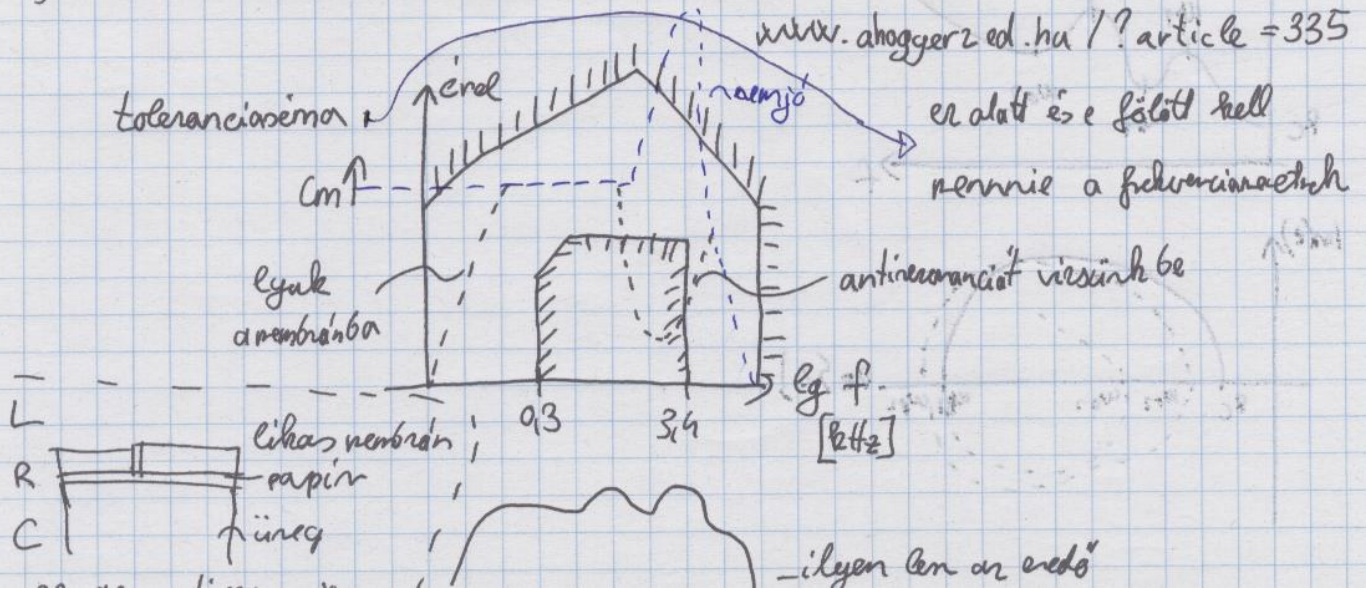 www.ahogyerzed.hu/?article=335
érz
toleranciaséma
nem jó
ez alatt és e fölött kell
mennie a frekvenciamenetnek
Cm↑
lyuk
a membránba
antirezonanciát viszünk be
0,3
3,4
lg f
[kHz]
L
R
C
likas membrán
papír
üreg
ilyen len az eredő